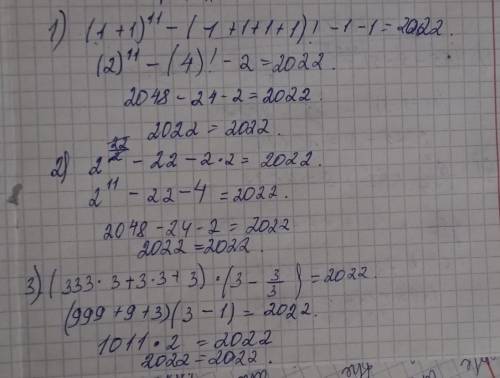 1) (1+1)^11 - (1+1+1+1)! - 1 - 1 = 2022.
(2)^11 - (4)! - 2 = 2022.
2048 - 24 - 2 = 2022.
2022 = 2022.
2) 2^(22/2) - 22 - 2·2 = 2022.
2^11 - 22 - 4 = 2022.
2048 - 24 - 2 = 2022
2022 = 2022.
3) (333·3+3·3+3)·(3 - 3/3) = 2022.
(999+9+3)(3-1) = 2022.
1011·2 = 2022
2022 = 2022.